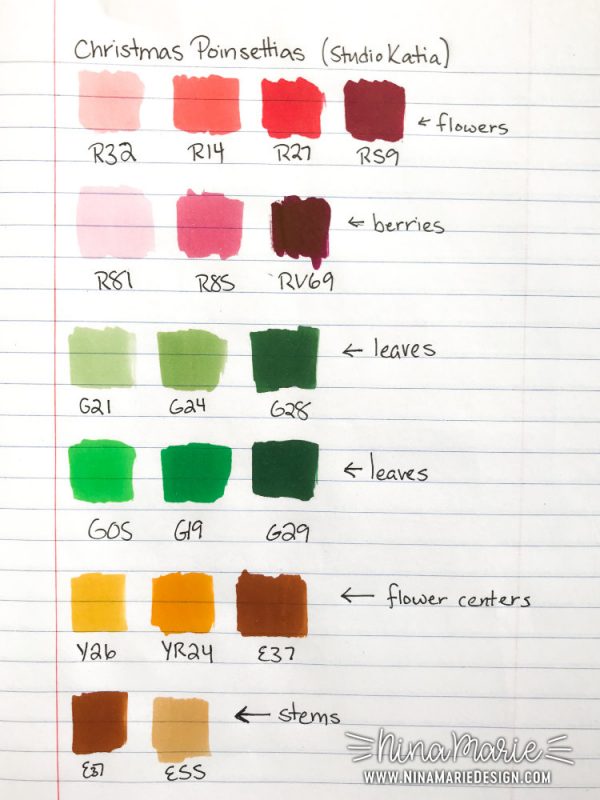 Christmas Poinsettias (Studio Katia)
R32 R14 R27 R59 ← flowers
R81 R85 RV69 ← berries
G21 G24 G28 ← leaves
G05 G19 G29 ← leaves
Y26 YR24 E37 ← flower centers
E37 E55 ← stems
NinaMarie
WWW.NINAMARIEDESIGN.COM